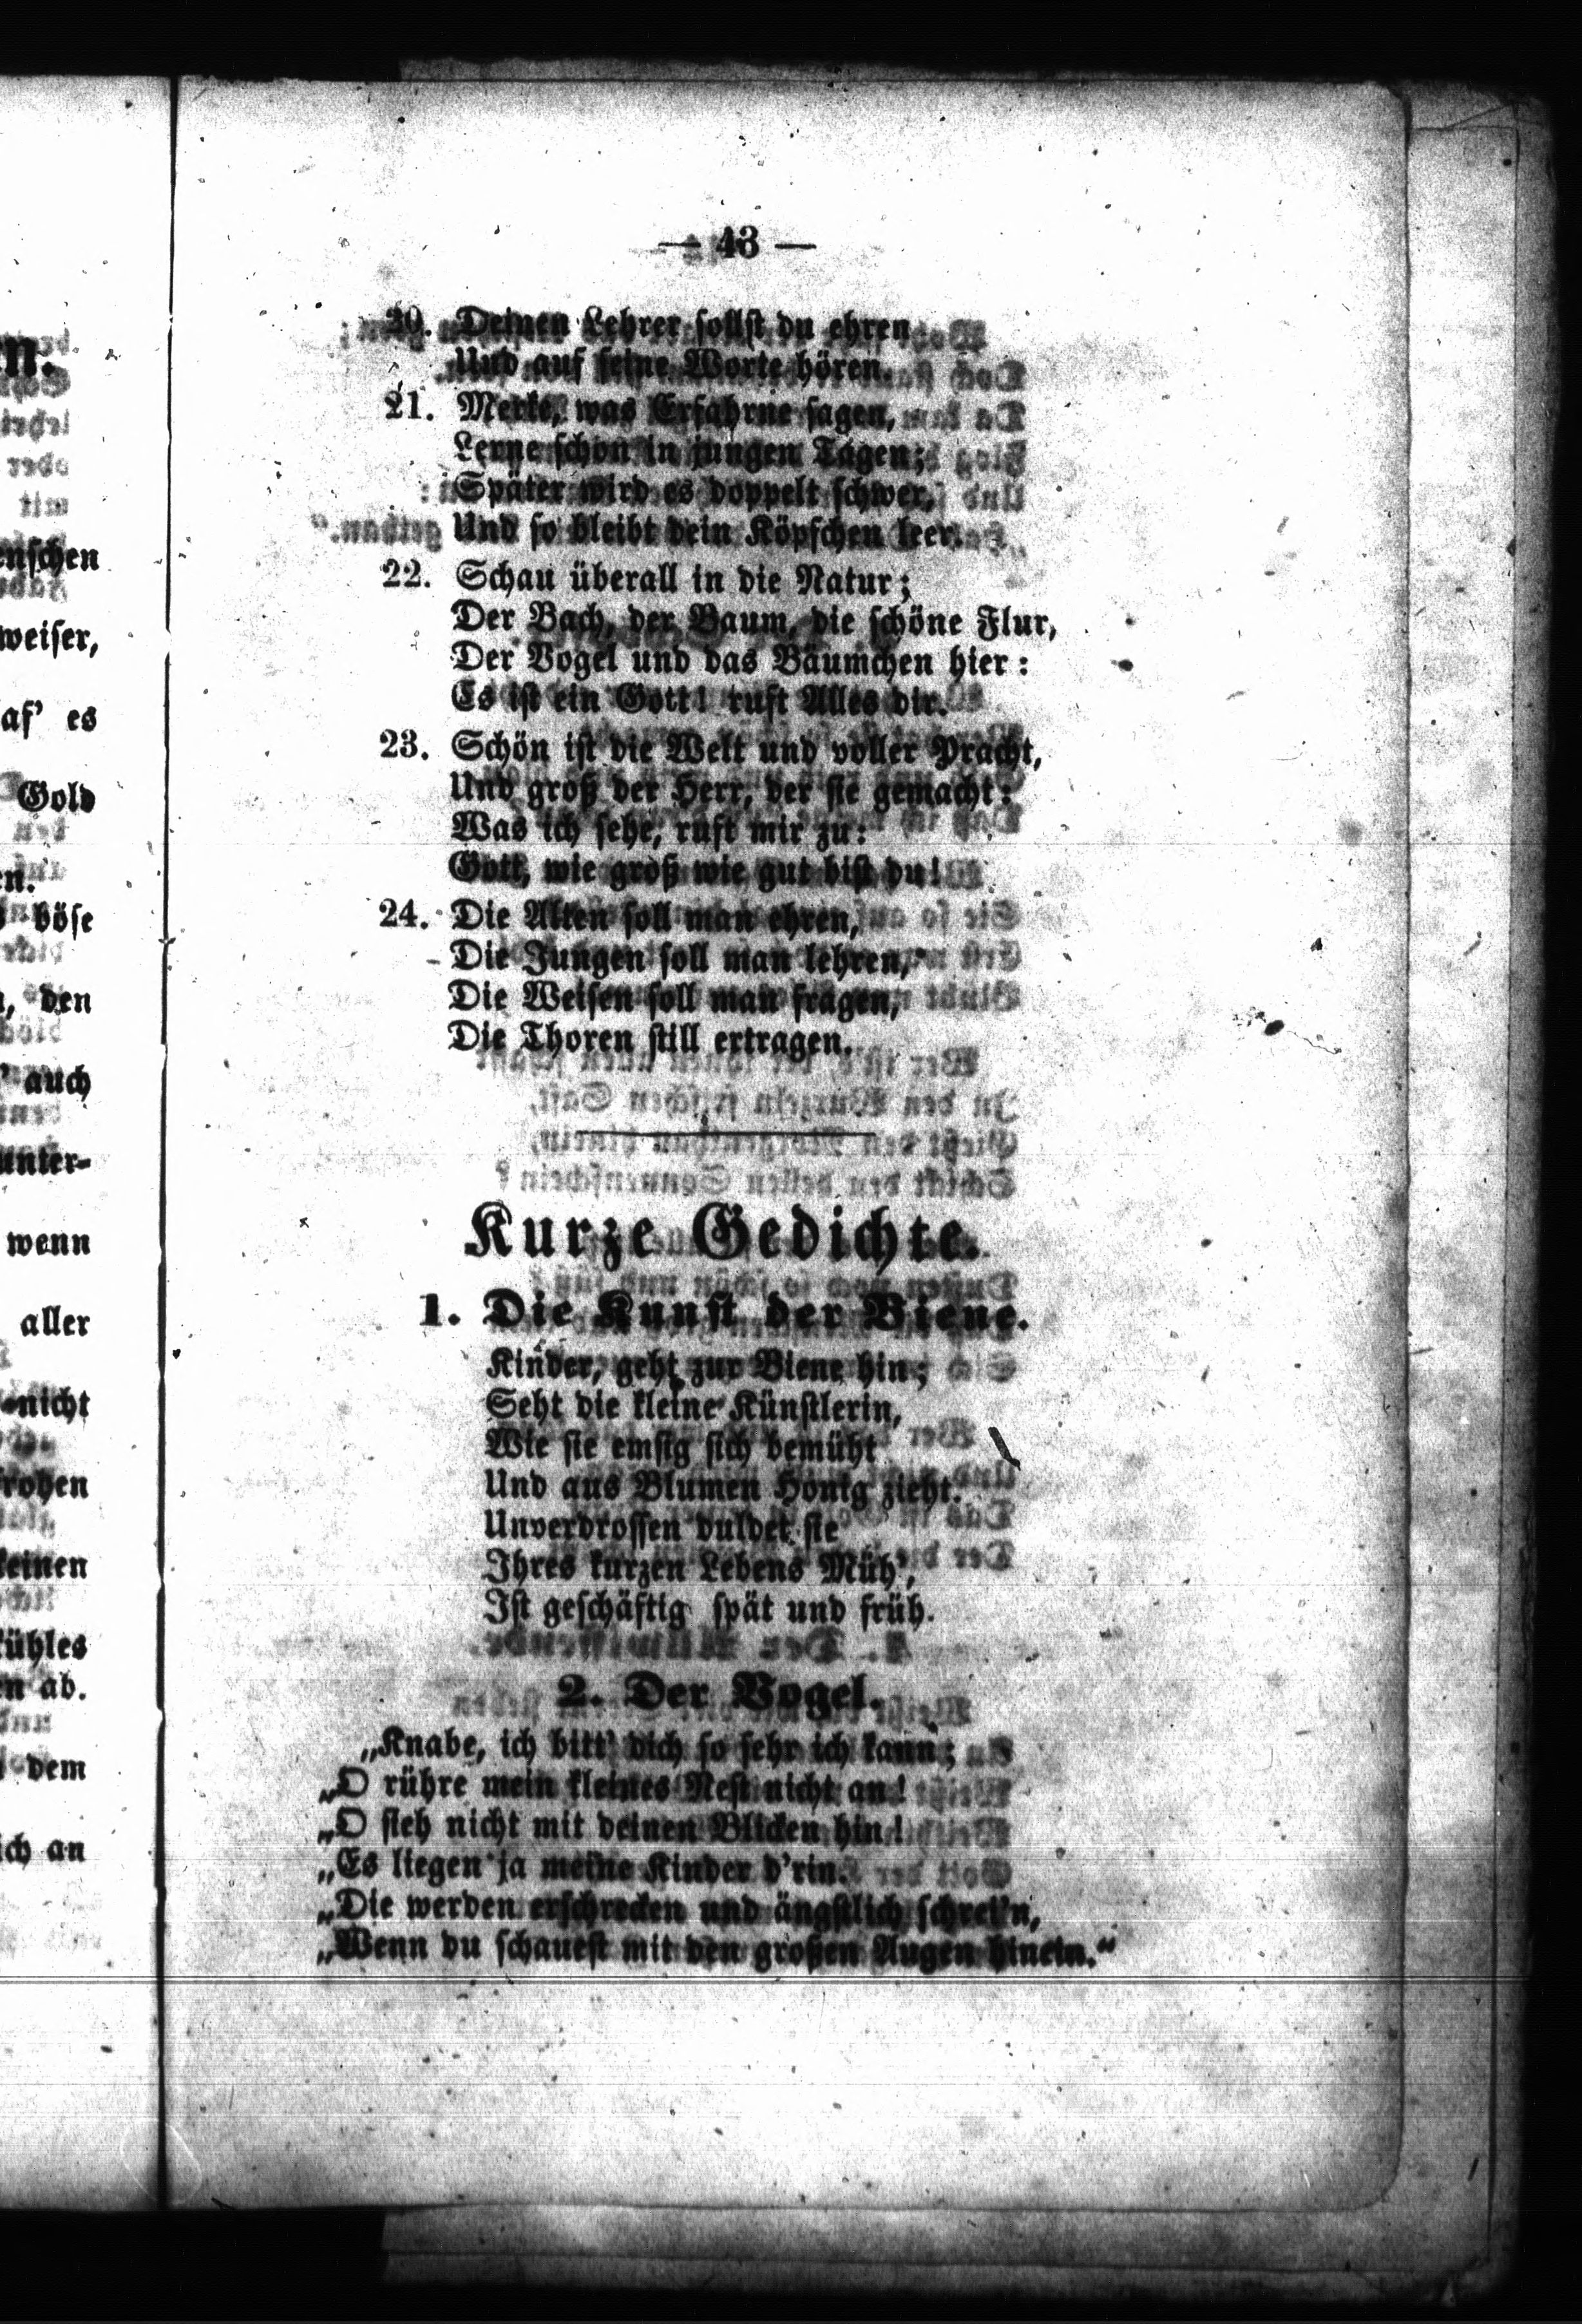 — 43 —
20. Deinen Lehrer sollst du ehren
Und auf seine Worte hören.
21. Merke, was Erfahrne sagen,
Lerne schon in jungen Tagen;
Später wird es doppelt schwer,
Und so bleibt dein Köpfchen leer.
22. Schau überall in die Natur;
Der Bach, der Baum, die schöne Flur,
Der Vogel und das Bäumchen hier:
Es ist ein Gott! ruft Alles dir.
23. Schön ist die Welt und voller Pracht,
Und groß der Herr, der sie gemacht:
Was ich sehe, ruft mir zu:
Gott, wie groß wie gut bist du!
24. Die Alten soll man ehren,
Die Jungen soll man lehren,
Die Weisen soll man fragen,
Die Thoren still ertragen.
Kurze Gedichte.
1. Die Kunst der Biene.
Kinder, geht zur Biene hin;
Seht die kleine Künstlerin,
Wie sie emsig sich bemüht
Und aus Blumen Honig zieht.
Unverdrossen duldet sie
Ihres kurzen Lebens Müh',
Ist geschäftig spät und früh.
2. Der Vogel.
„Knabe, ich bitt' dich so sehr ich kann;
„O rühre mein kleines Nest nicht an!
„O sieh nicht mit deinen Blicken hin!
„Es liegen ja meine Kinder d'rin.
„Die werden erschrecken und ängstlich schrei'n,
„Wenn du schauest mit den großen Augen hinein.“